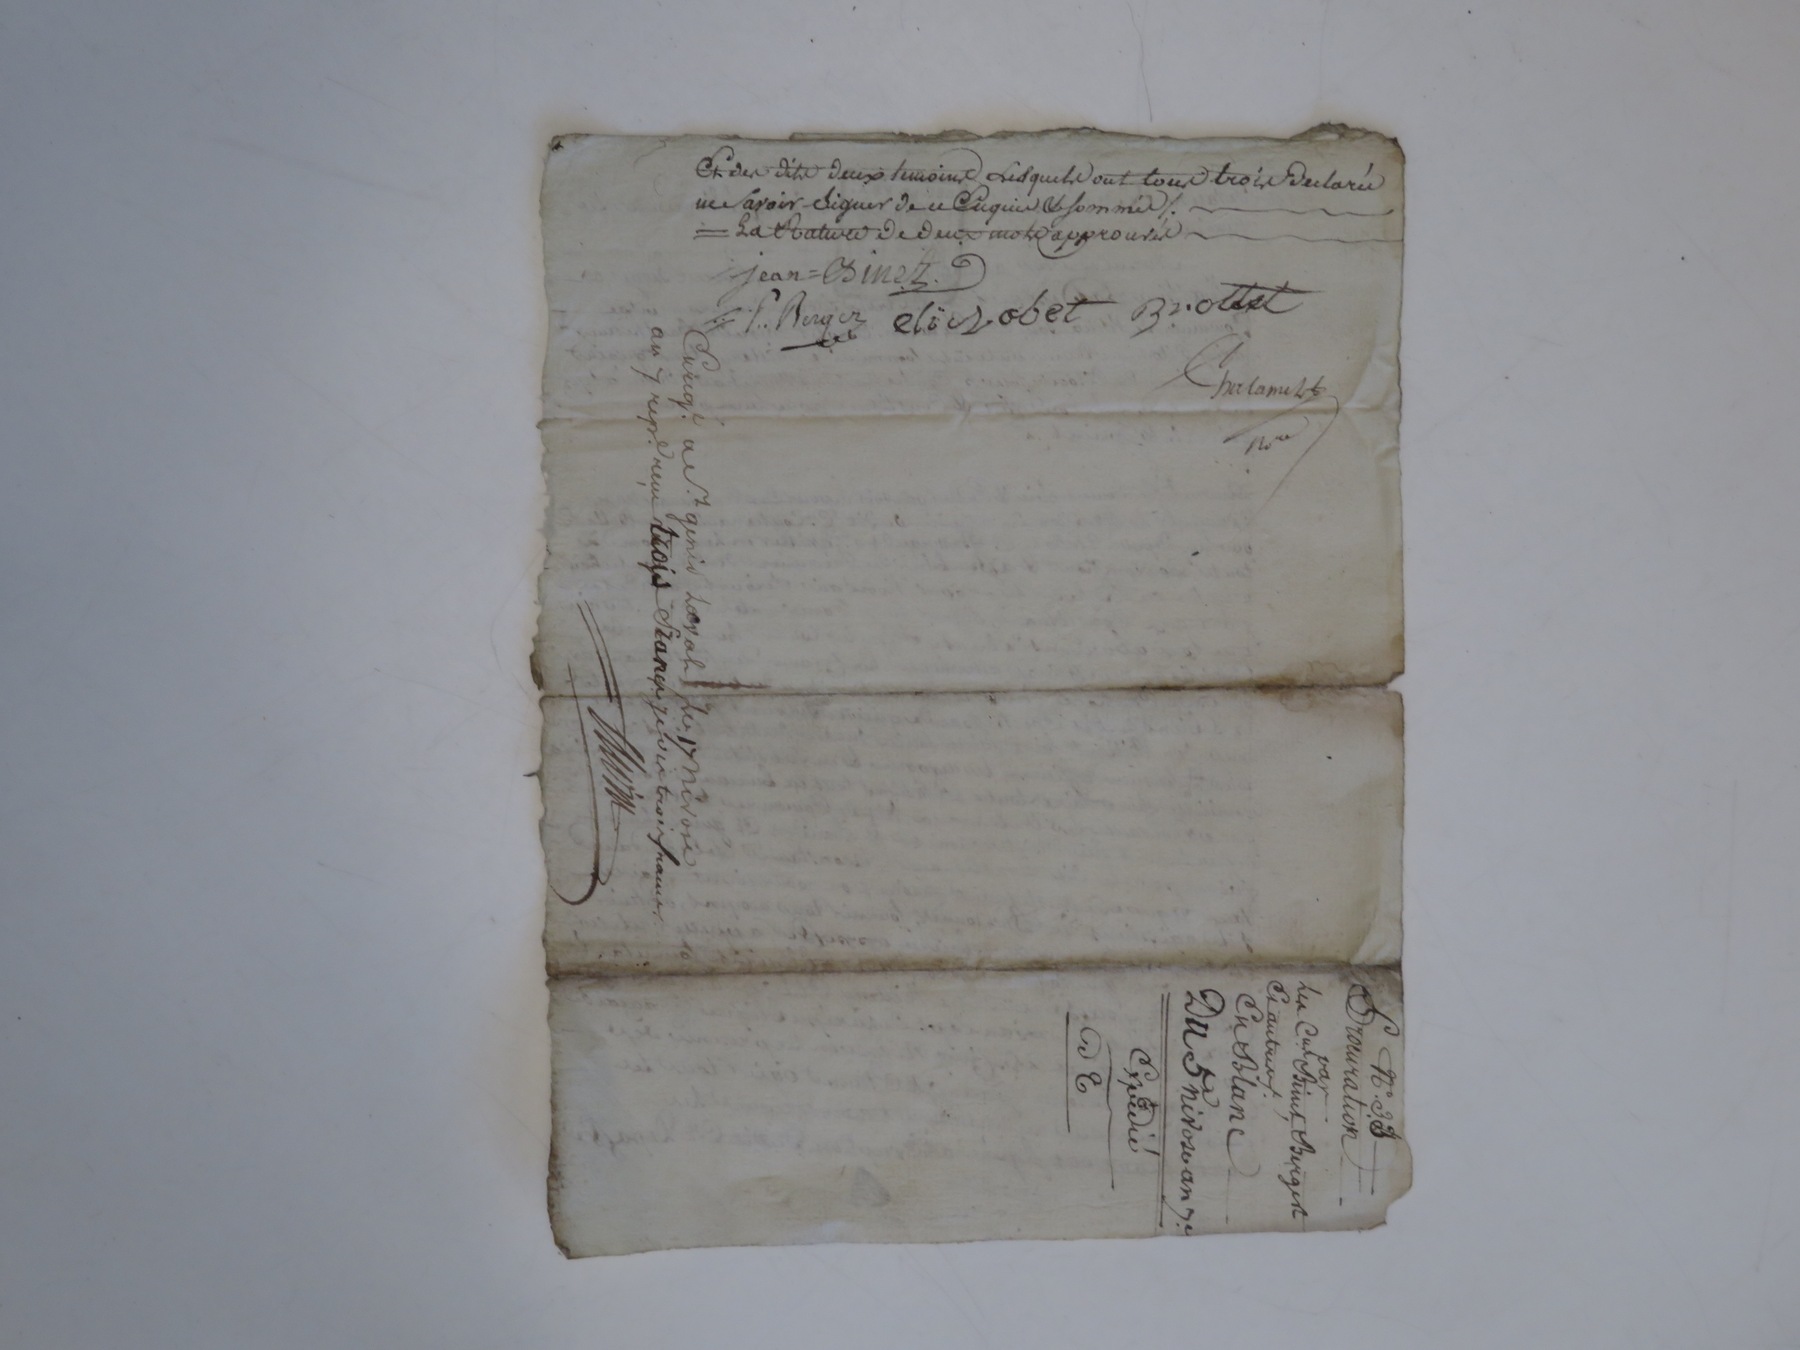 Et des dits deux temoins lesquels ont tous trois declaré
ne Savoir Signer de ce Enquis & sommés /.
= La Rature de deux mots approuvés
jean = Binet
P. Berger elisabet Brottet
Chalamel
Nre
Enregé. a St. genis Laval Le 17 Nivose
an 7 repd. reçu trois francs
N°. 33
Procuration
par
Les Cns. Binet, Berger
Et autres,
En Blanc
Du 5 nivose an 7e.
Expedié